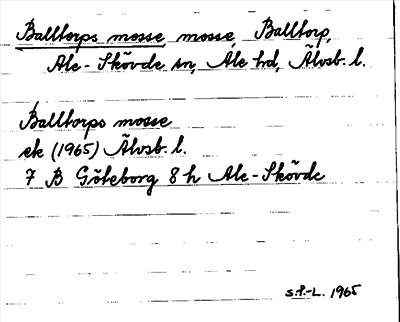 Balltorps mosse, mosse, Balltorp,
Ale-Skövde sn, Ale hd, Älvsb. l.
Balltorps mosse
ek (1965) Älvsb. l.
7 B Göteborg 8 h Ale-Skövde
S.P.-L. 1965